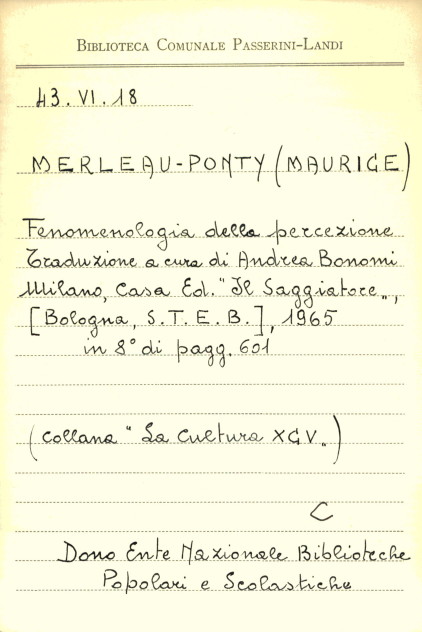 BIBLIOTECA COMUNALE PASSERINI-LANDI
43.VI.18
MERLEAU-PONTY (MAURICE)
Fenomenologia della percezione
Traduzione a cura di Andrea Bonomi
Milano, Casa Ed. "Il Saggiatore„,
[Bologna, S.T.E.B.], 1965
in 8° di pagg. 601
(collana "La Cultura XCV„)
C
Dono Ente Nazionale Biblioteche
Popolari e Scolastiche